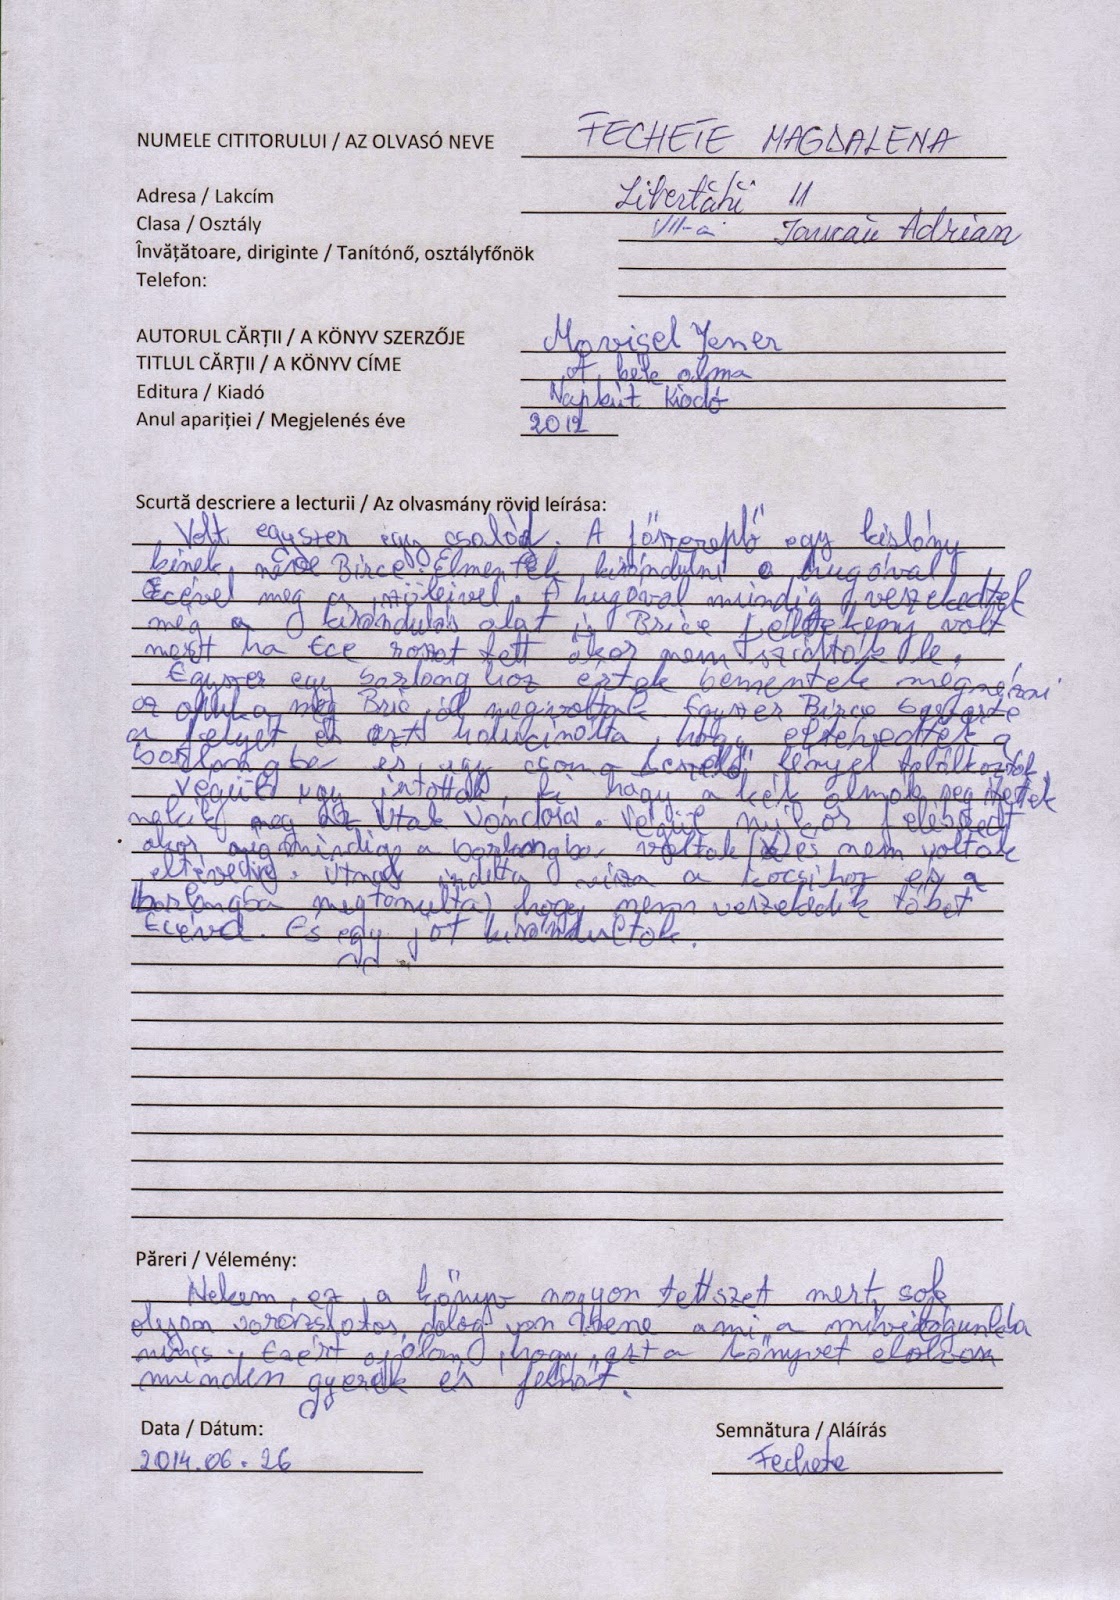 NUMELE CITITORULUI / AZ OLVASÓ NEVE FECHETE MAGDALENA
Adresa / Lakcím Libertății 11
Clasa / Osztály VII-a Adrian
Învățătoare, diriginte / Tanítónő, osztályfőnök
Telefon:
AUTORUL CĂRȚII / A KÖNYV SZERZŐJE Mavisel Yener
TITLUL CĂRȚII / A KÖNYV CÍME A kék alma
Editura / Kiadó Napkút Kiadó
Anul apariției / Megjelenés éve 2012
Scurtă descriere a lecturii / Az olvasmány rövid leírása:
Volt egyszer egy család. A főszereplő egy kislány
kinek neve Birce. Elmentek kirándulni a hugával
Ecével meg a szüleivel. A hugával mindig veszekedtek
meg a kirándulás alat is Birce volt
mert ha Ece roszat tett akor nem szidták le.
Egyszer egy barlanghoz értek bementek megnézni
az meg Egyszer Birce
a fejyét és azt halucinálta, hogy eltévedtek a
barlangba és egy csoma beszélő lényel találkoztak
Végül ugy jutottak ki hogy a kék almák segitettek
nekik meg az Utak Vándora. Végül mikor felébredt
akor mindig a barlangba voltak és nem voltak
eltévedve. Utnak indulta visza a kocsihoz és a
barlangba megtanulta, hogy nem veszekedik töbet
Ecével. És egy jót kirándultak.
Păreri / Vélemény:
Nekem ez a könyv nagyon tettszet mert sok
olyan varázslatos dolog van bene ami a mi világunkba
nincs. Ezért ajálom, hogy ezt a könyvet elolvasa
minden gyerek és felnőt.
Data / Dátum: Semnătura / Aláírás
2014.06.26 Fechete